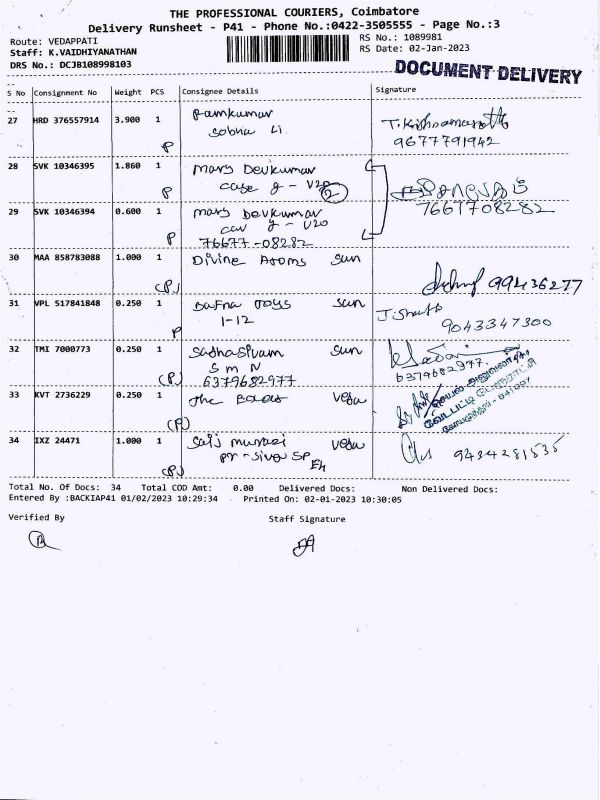 THE PROFESSIONAL COURIERS, Coimbatore
Delivery Runsheet - P41 - Phone No.:0422-3505555 - Page No.:3
Route: VEDAPPATI RS No.: 1089981
Staff: K.VAIDHIYANATHAN RS Date: 02-Jan-2023
DRS No.: DCJB108998103
DOCUMENT DELIVERY
S No Consignment No Weight PCS Consignee Details Signature
27 HRD 376557914 3.900 1 Ramkumar
Sobha Li
P
9677791942
28 SVK 10346395 1.860 1 Mars Devkumar
V20 2
P
7661708282
29 SVK 10346394 0.600 1 Mars Devkumar
V20
P 76677-08282
30 MAA 858783088 1.000 1 Divine Atoms Sun
(P) 99436277
31 VPL 517841848 0.250 1 Bafna Toys Sun
1-12
P 9043347300
32 TMI 7000773 0.250 1 Sadhasivam Sun
S M N
(P) 6379682977
6379682977
33 KVT 2736229 0.250 1 The
(P)
34 IXZ 24471 1.000 1
(P) 9434281535
Total No. Of Docs: 34 Total COD Amt: 0.00 Delivered Docs: Non Delivered Docs:
Entered By :BACKIAP41 01/02/2023 10:29:34 Printed On: 02-01-2023 10:30:05
Verified By Staff Signature